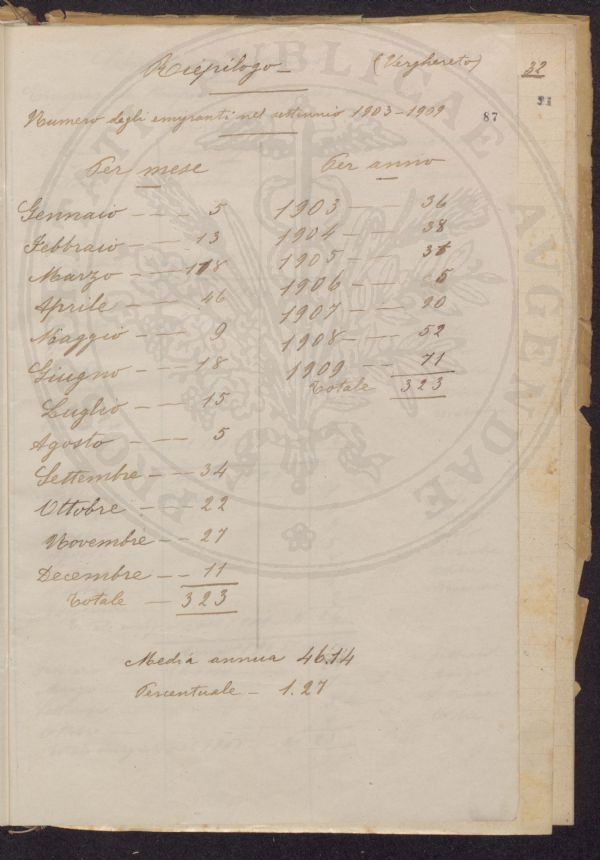 Riepilogo (Verghereto) 32
31
Numero degli emigranti nel settennio 1903-1909 87
Per mese Per anno
Gennaio - - - 5 1903 - - 36
Febbraio - - - 13 1904 - - 38
Marzo - - 118 1905 - - 31
Aprile - - - 46 1906 - - 5
Maggio - - - 9 1907 - - 90
Giugno - - - 18 1908 - - 52
1909 - - 71
Totale 323
Luglio - - - 15
Agosto - - - 5
Settembre - - 34
Ottobre - - - 22
Novembre - - 27
Decembre - - 11
Totale - 323
Media annua 46.14
Percentuale - 1.27
PUBLICAE AVGENDAE